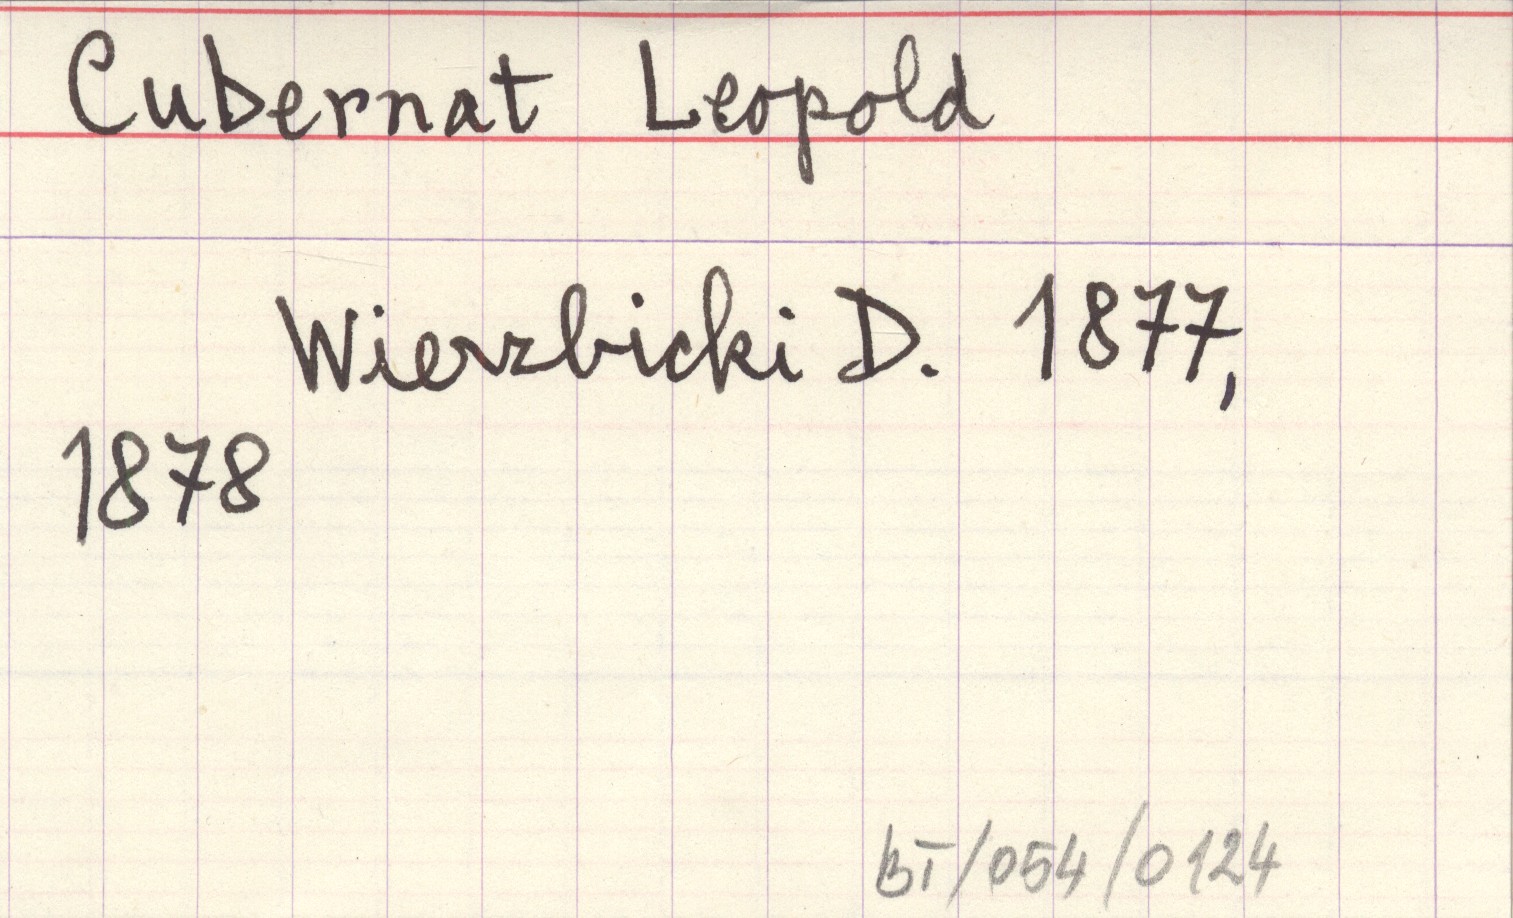 Cubernat Leopold
Wierzbicki D. 1877,
1878
BI/054/0124